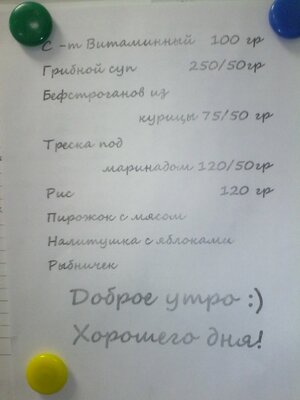 С-т Витаминный 100 гр
Грибной суп 250/50гр
Бефстроганов из
курицы 75/50 гр
Треска под
маринадом 120/50гр
Рис 120 гр
Пирожок с мясом
Налитушка с яблоками
Рыбничек
Доброе утро :)
Хорошего дня!